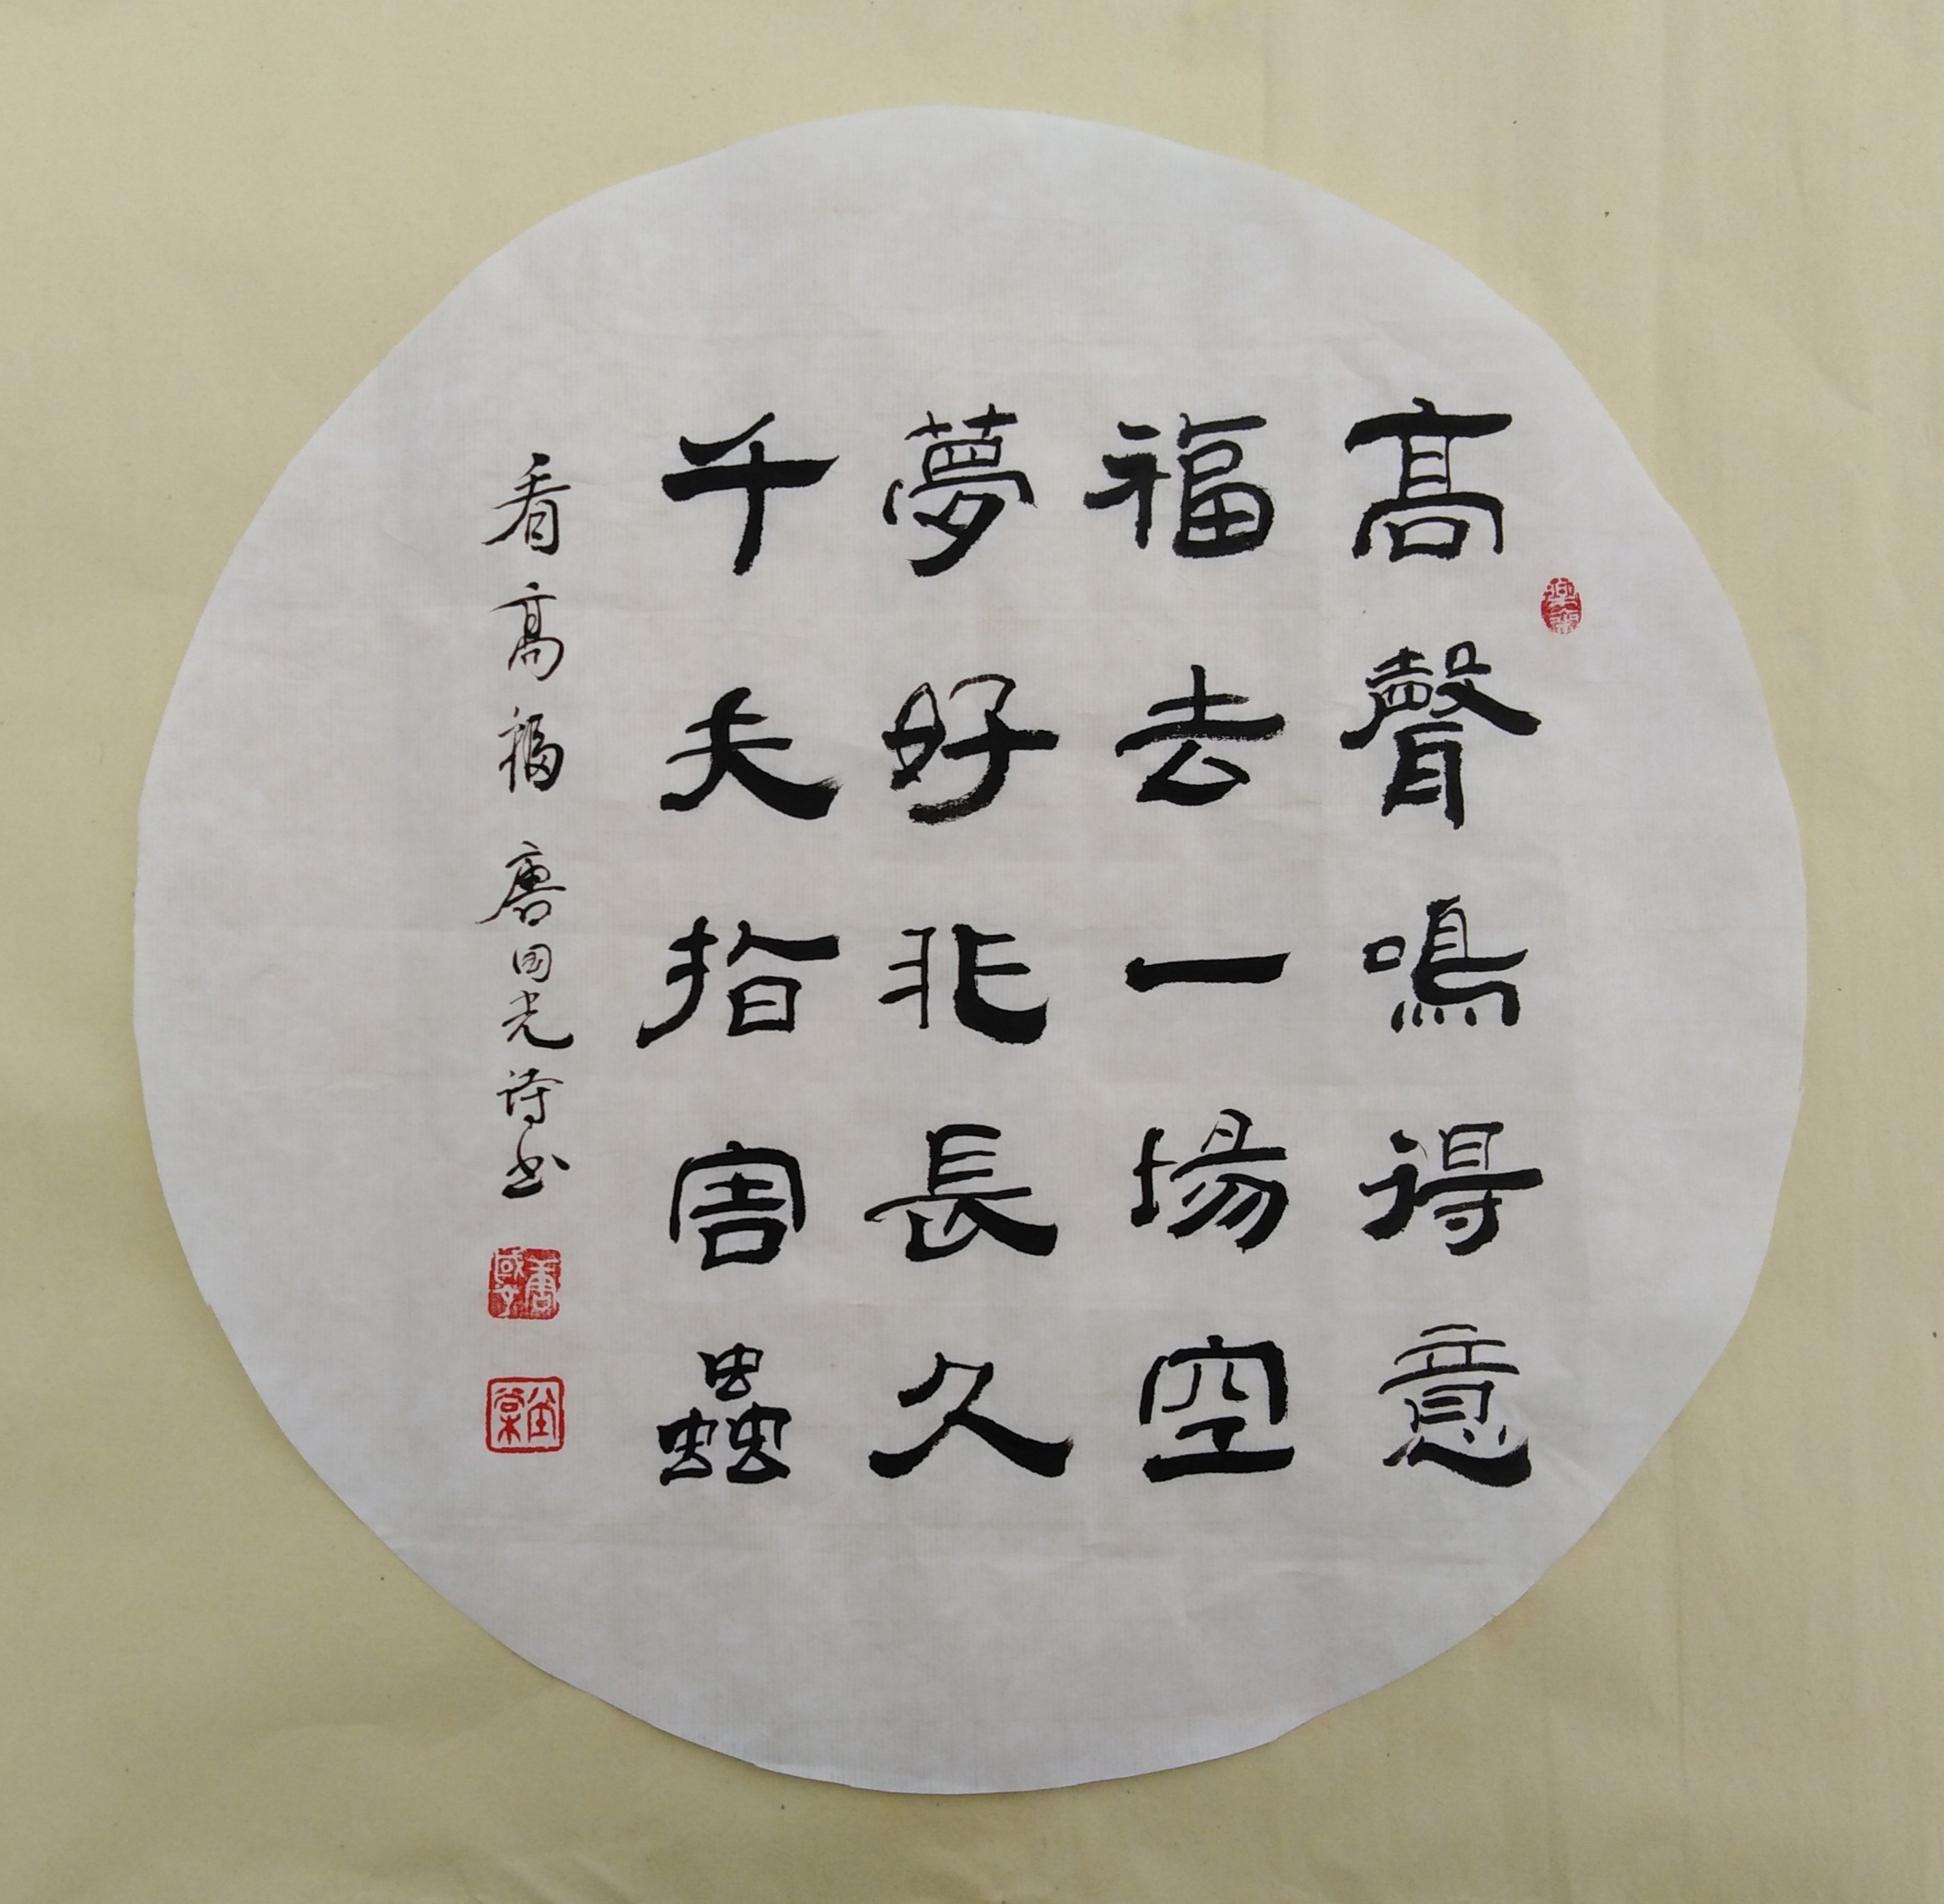 高聲鳴得意
福去一場空
夢好非長久
千夫指害蟲
看高福 唐国光诗书